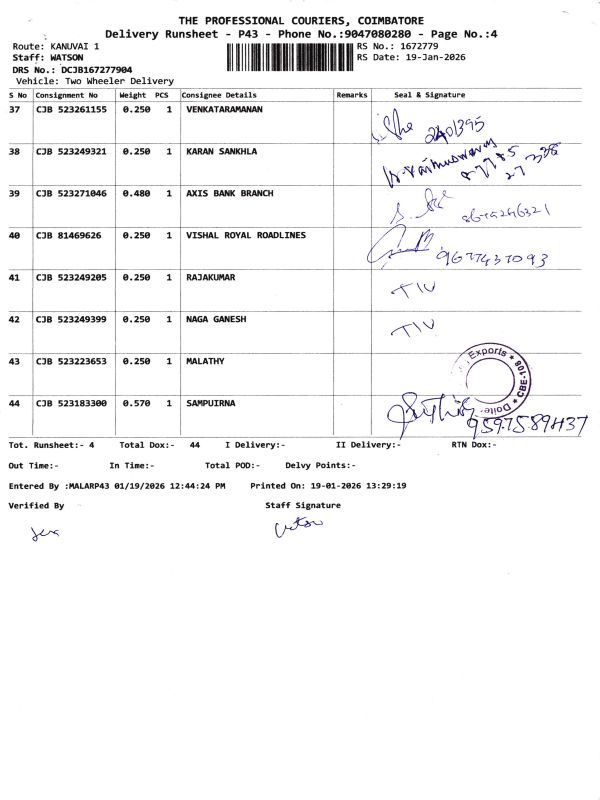 THE PROFESSIONAL COURIERS, COIMBATORE
Delivery Runsheet - P43 - Phone No.:9047080280 - Page No.:4
Route: KANUVAI 1 RS No.: 1672779
Staff: WATSON RS Date: 19-Jan-2026
DRS No.: DCJB167277904
Vehicle: Two Wheeler Delivery
S No Consignment No Weight PCS Consignee Details Remarks Seal & Signature
37 CJB 523261155 0.250 1 VENKATARAMANAN
38 CJB 523249321 0.250 1 KARAN SANKHLA
39 CJB 523271046 0.480 1 AXIS BANK BRANCH
40 CJB 81469626 0.250 1 VISHAL ROYAL ROADLINES 9677437093
41 CJB 523249205 0.250 1 RAJAKUMAR
42 CJB 523249399 0.250 1 NAGA GANESH
43 CJB 523223653 0.250 1 MALATHY
Exports * CBE-108
44 CJB 523183300 0.570 1 SAMPUIRNA 9597589437
Tot. Runsheet:- 4 Total Dox:- 44 I Delivery:- II Delivery:- RTN Dox:-
Out Time:- In Time:- Total POD:- Delvy Points:-
Entered By :MALARP43 01/19/2026 12:44:24 PM Printed On: 19-01-2026 13:29:19
Verified By Staff Signature